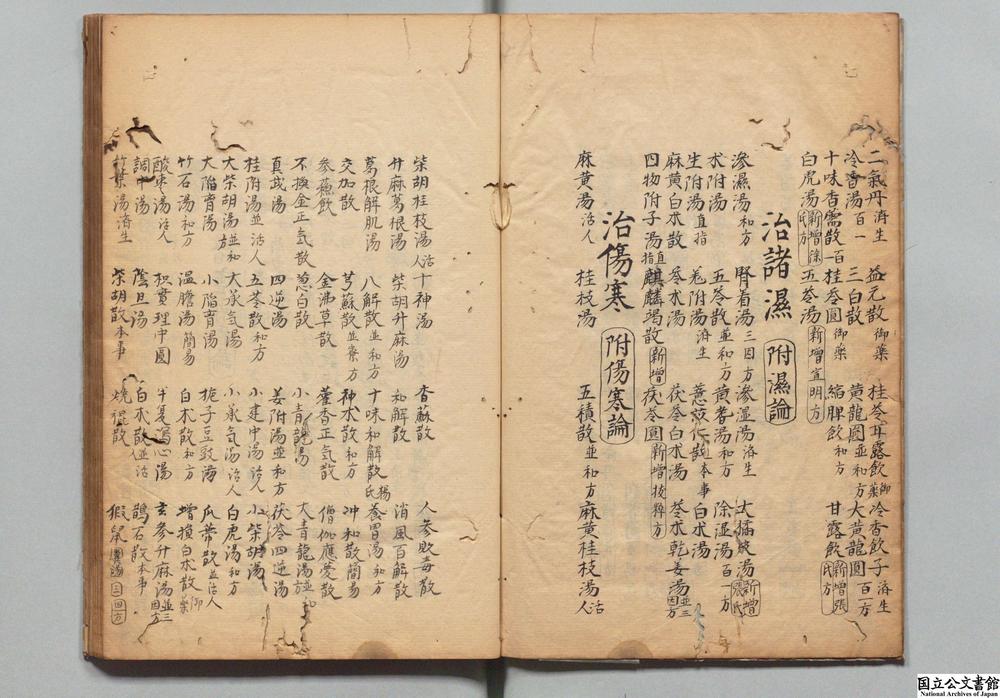 二氣丹 済生 益元散 御藥 桂苓甘露飲 御藥 冷香飲子 済生
冷香湯 百一 三白散 黄龍圓 並和方 大黄龍圓 百一方
十味香薷散 百一 桂苓圓 御藥 縮脾飲 和方 甘露飲 新增張氏方
白虎湯 新增徐氏方 五苓湯 新增宣明方
治諸濕 附濕論
滲濕湯 和方 腎着湯 三因方 滲湿湯 済生 大橘皮湯 新增張氏
朮附湯 五苓散 並和方 黄耆湯 和方 除湿湯 百一方
生附湯 直指 羗附湯 済生 薏苡仁散 本事 白朮湯
麻黄白朮散 苓朮湯 茯苓白朮湯 苓朮乾姜湯 並三因方
四物附子湯 直指 麒麟竭散 新增 茯苓圓 新增拔粹方
治傷寒 附傷寒論
麻黄湯 活人 桂枝湯 五積散 並和方 麻黄桂枝湯 活人
柴胡桂枝湯 活人 十神湯 香蘇散 人參敗毒散
升麻葛根湯 柴胡升麻湯 和解散 消風百解散
葛根解肌湯 八解散 並和方 十味和解散 楊氏 養胃湯 和方
交加散 芎蘇散 並褒方 神朮散 和方 冲和散 簡易
參蘇飲 金沸草散 藿香正気散 僧伽應夢散
不換金正気散 葱白散 小青龍湯 大青龍湯 並和方
真武湯 四逆湯 姜附湯 並和方 茯苓四逆湯
桂附湯 並活人 五苓散 和方 小建中湯 活人 小柴胡湯
大柴胡湯 並和方 大承気湯 小承気湯 活人 白虎湯 和方
大陥胷湯 小陥胷湯 梔子豆豉湯 瓜蒂散 並活人
竹石湯 和方 温膽湯 簡易 白朮散 和方 增損白朮散 御藥
酸枣湯 活人 枳實理中圓 半夏瀉心湯 玄參升麻湯 並三因方
調中湯 陰旦湯 白朮散 並活人 鵲石散 本事
竹葉湯 済生 柴胡散 本事 燒裩散 猳鼠糞湯 三四方
国立公文書館
National Archives of Japan